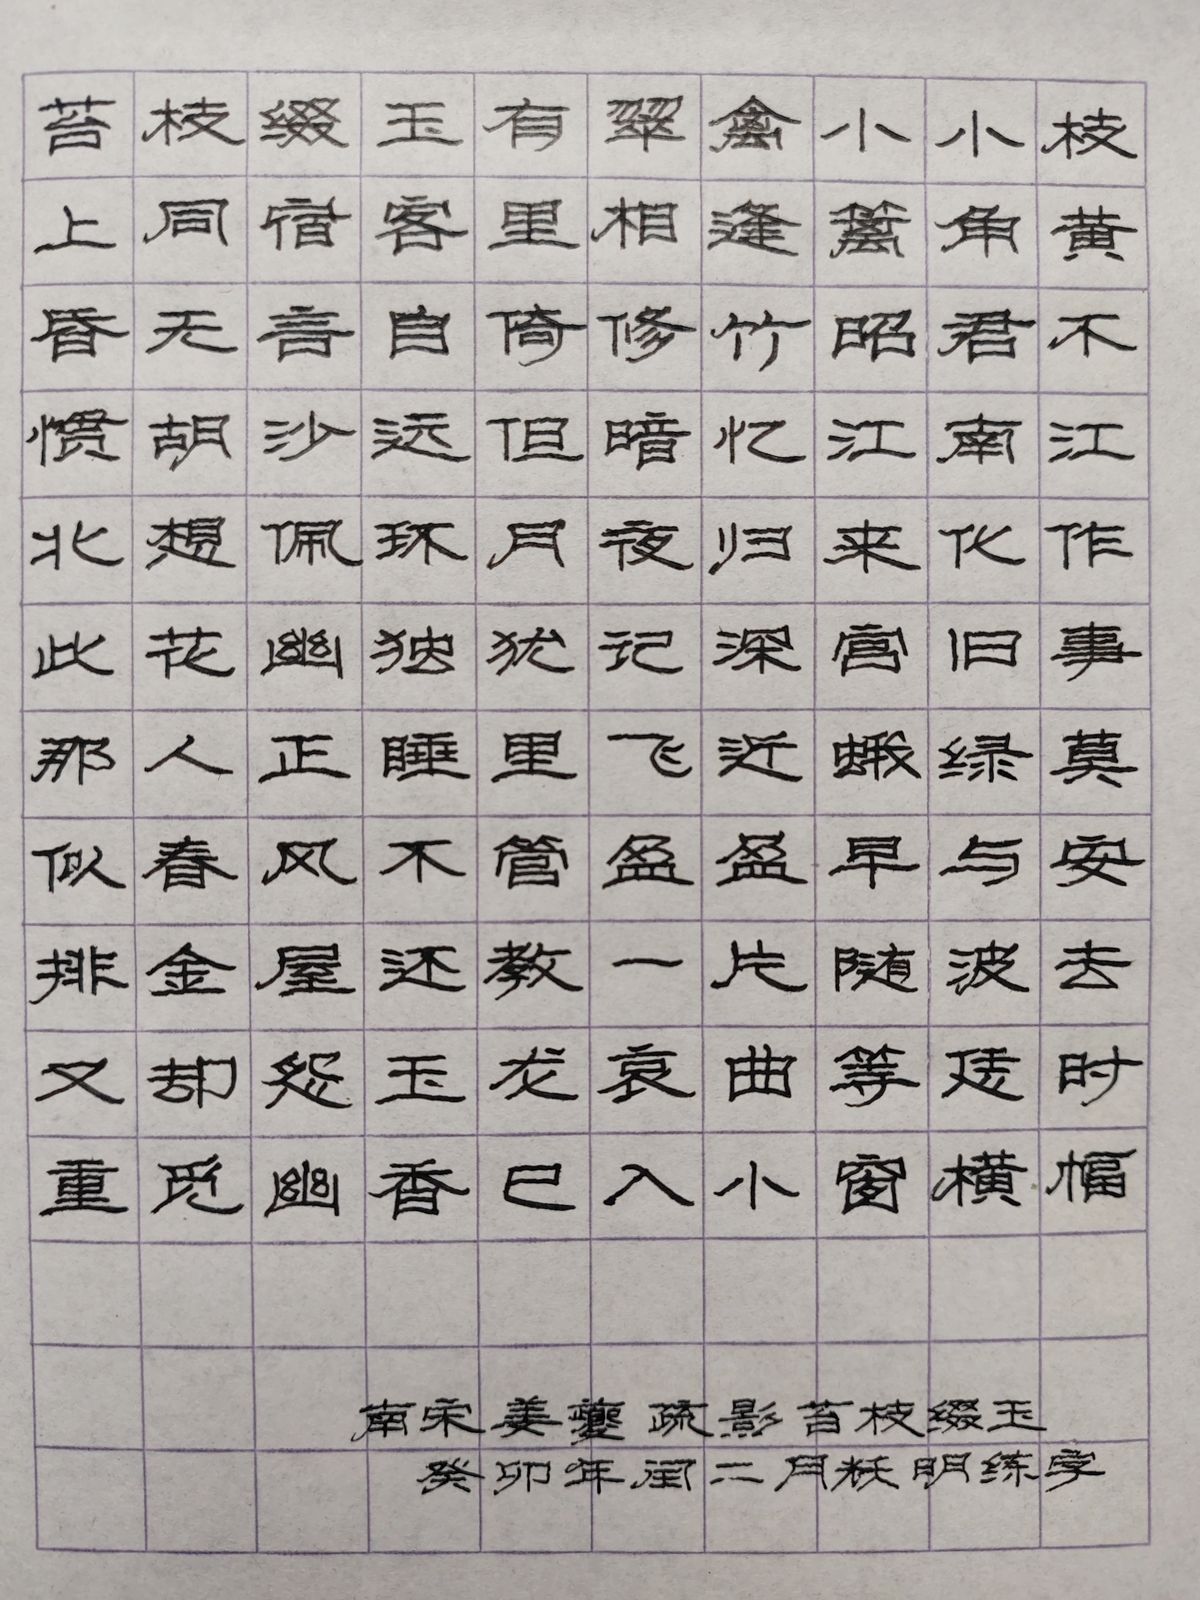 苔枝缀玉有翠禽小小枝
上同宿客里相逢篱角黄
昏无言自倚修竹昭君不
惯胡沙远但暗忆江南江
北想佩环月夜归来化作
此花幽独犹记深宫旧事
那人正睡里飞近蛾绿莫
似春风不管盈盈早与安
排金屋还教一片随波去
又却怨玉龙哀曲等恁时
重觅幽香已入小窗横幅
南宋姜夔疏影苔枝缀玉
癸卯年闰二月 明练字